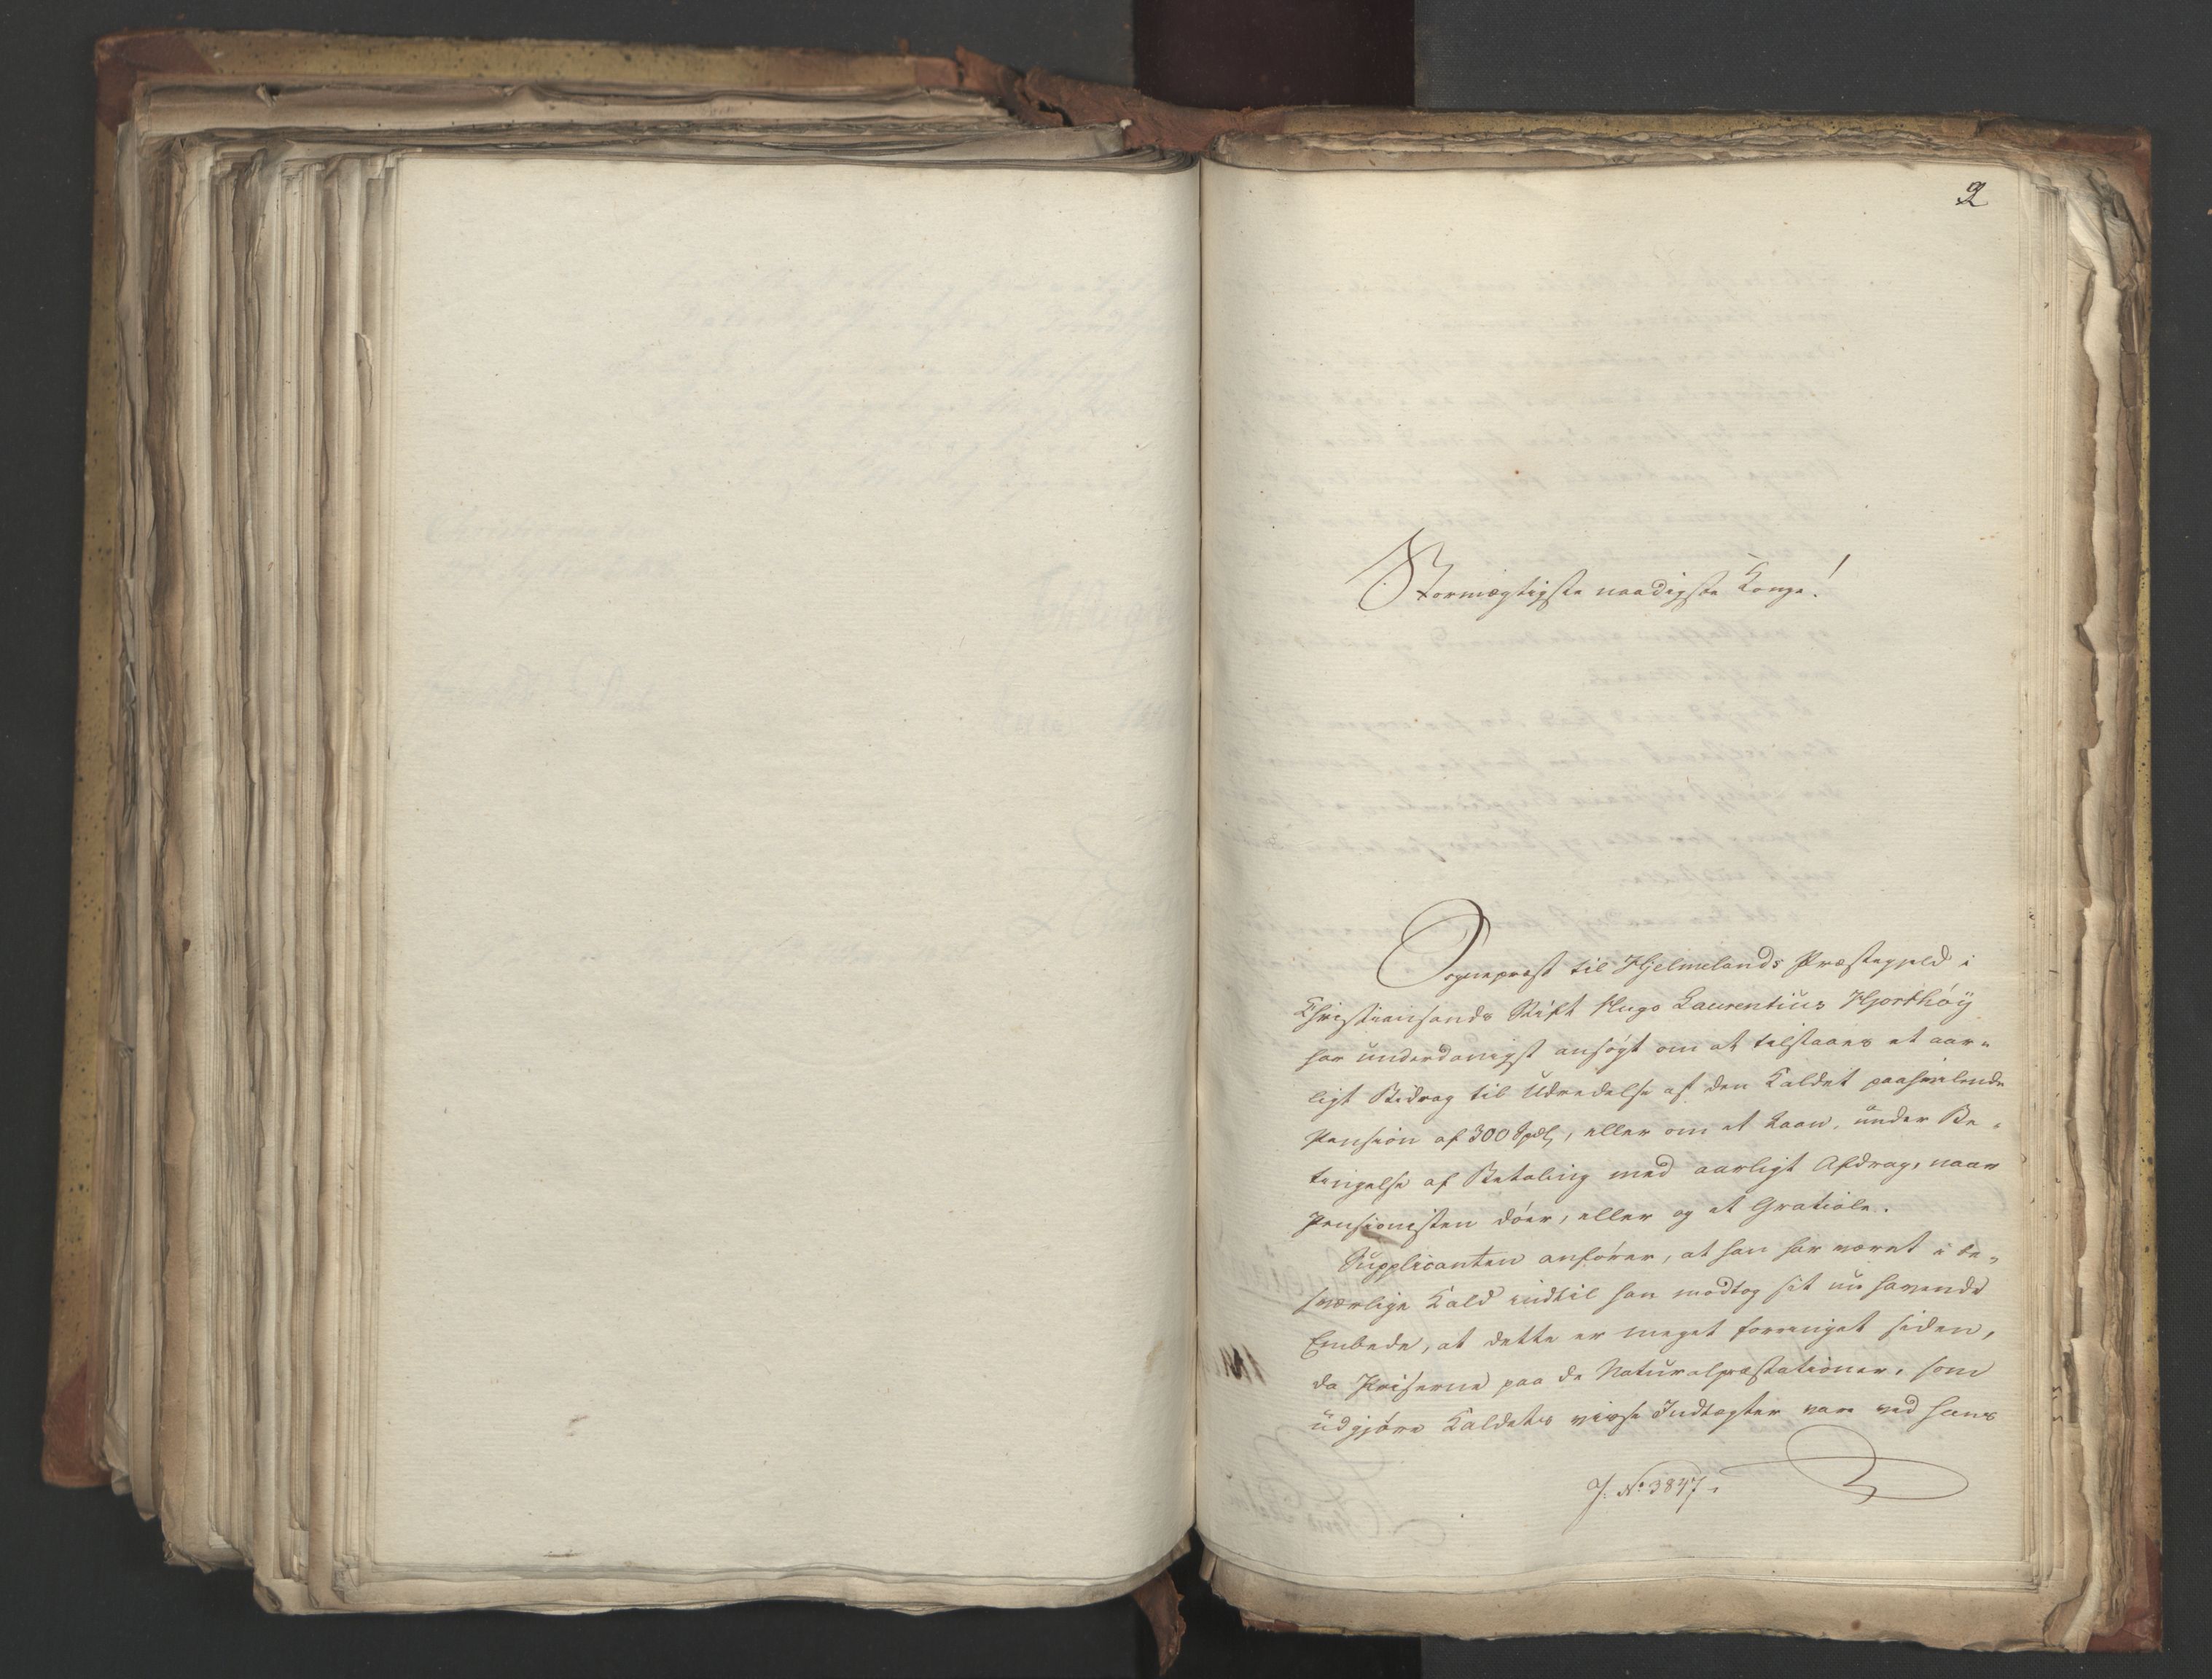 2
Stormægtigste naadigste Konge!
Sognepræst til Hjelmelands Præstegjeld i
Christiansands Stift Hugo Laurentius Hjorthöÿ
har underdanigst ansøgt om at tilstaaes et aar-
ligt Bidrag til Udredelse af den Kaldet paahvilende
Pension af 300 Spdlr, eller om et Laan, under Be-
tingelse af Betaling med aarligt Afdrag, naar
Pensionisten döer, eller og et Gratiale.
Supplicanten anfører, at han har været i be-
sværlige Kald indtil han modtog sit nu havende
Embede, at dette er meget forringet siden,
da Priserne paa de Naturalpræstationer, som
udgjöre Kaldets visse Indtægter var ved hans
J. No 3847.